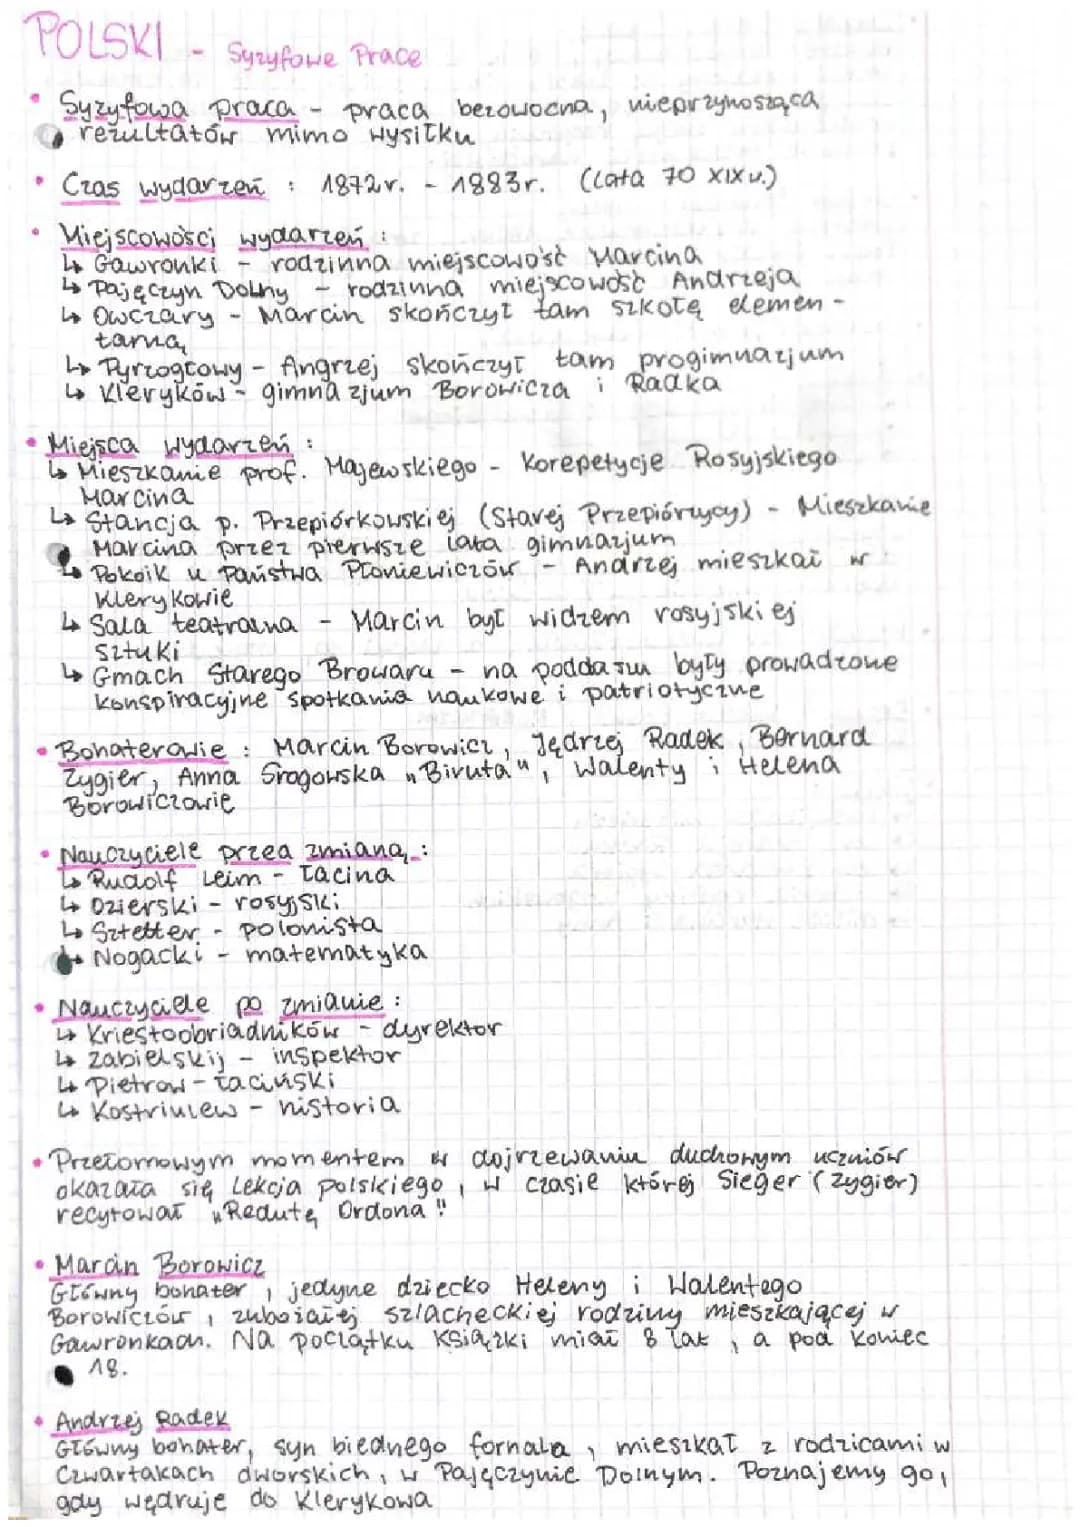 POLSKI - Syzyfowe Prace
• Syzyfowa praca - praca bezowocna, nieprzynosząca
rezultatów mimo wysiłku
• Czas wydarzeń : 1872r. - 1883r. (lata 70 XIXw.)
• Miejscowości wydarzeń :
↳ Gawronki - rodzinna miejscowość Marcina
↳ Pajęczyn Dolny - rodzinna miejscowość Andrzeja
↳ Owczary - Marcin skończył tam szkołę elemen-
tarną
↳ Pyrzogłowy - Angrzej skończył tam progimnazjum
↳ Kleryków - gimnazjum Borowicza i Radka
• Miejsca wydarzeń :
↳ Mieszkanie prof. Majewskiego - Korepetycje Rosyjskiego
Marcina
↳ Stancja p. Przepiórkowskiej (Starej Przepiórzycy) - Mieszkanie
Marcina przez pierwsze lata gimnazjum
↳ Pokoik u Państwa Płoniewiczów - Andrzej mieszkał w
Klerykowie
↳ Sala teatralna - Marcin był widzem rosyjskiej
sztuki
↳ Gmach Starego Browaru - na poddaszu były prowadzone
konspiracyjne spotkania naukowe i patriotyczne
• Bohaterowie : Marcin Borowicz, Jędrzej Radek, Bernard
Zygier, Anna Srogowska „Biruta", Walenty i Helena
Borowiczowie
• Nauczyciele przed zmianą :
↳ Rudolf Leim - łacina
↳ Ozierski - rosyjski
↳ Sztetter - polonista
↳ Nogacki - matematyka
• Nauczyciele po zmianie :
↳ Kriestoobriadników - dyrektor
↳ Zabielskij - inspektor
↳ Pietrow - łaciński
↳ Kostriulew - historia
• Przełomowym momentem w dojrzewaniu duchowym uczniów
okazała się lekcja polskiego, w czasie której Sieger (Zygier)
recytował „Redutę Ordona"
• Marcin Borowicz
Główny bohater, jedyne dziecko Heleny i Walentego
Borowiczów, zubożałej szlacheckiej rodziny mieszkającej w
Gawronkach. Na początku książki miał 8 lat, a pod koniec
18.
• Andrzej Radek
Główny bohater, syn biednego fornala, mieszkał z rodzicami w
czwartakach dworskich, w Pajęczynie Dolnym. Poznajemy go,
gdy wędruje do Klerykowa